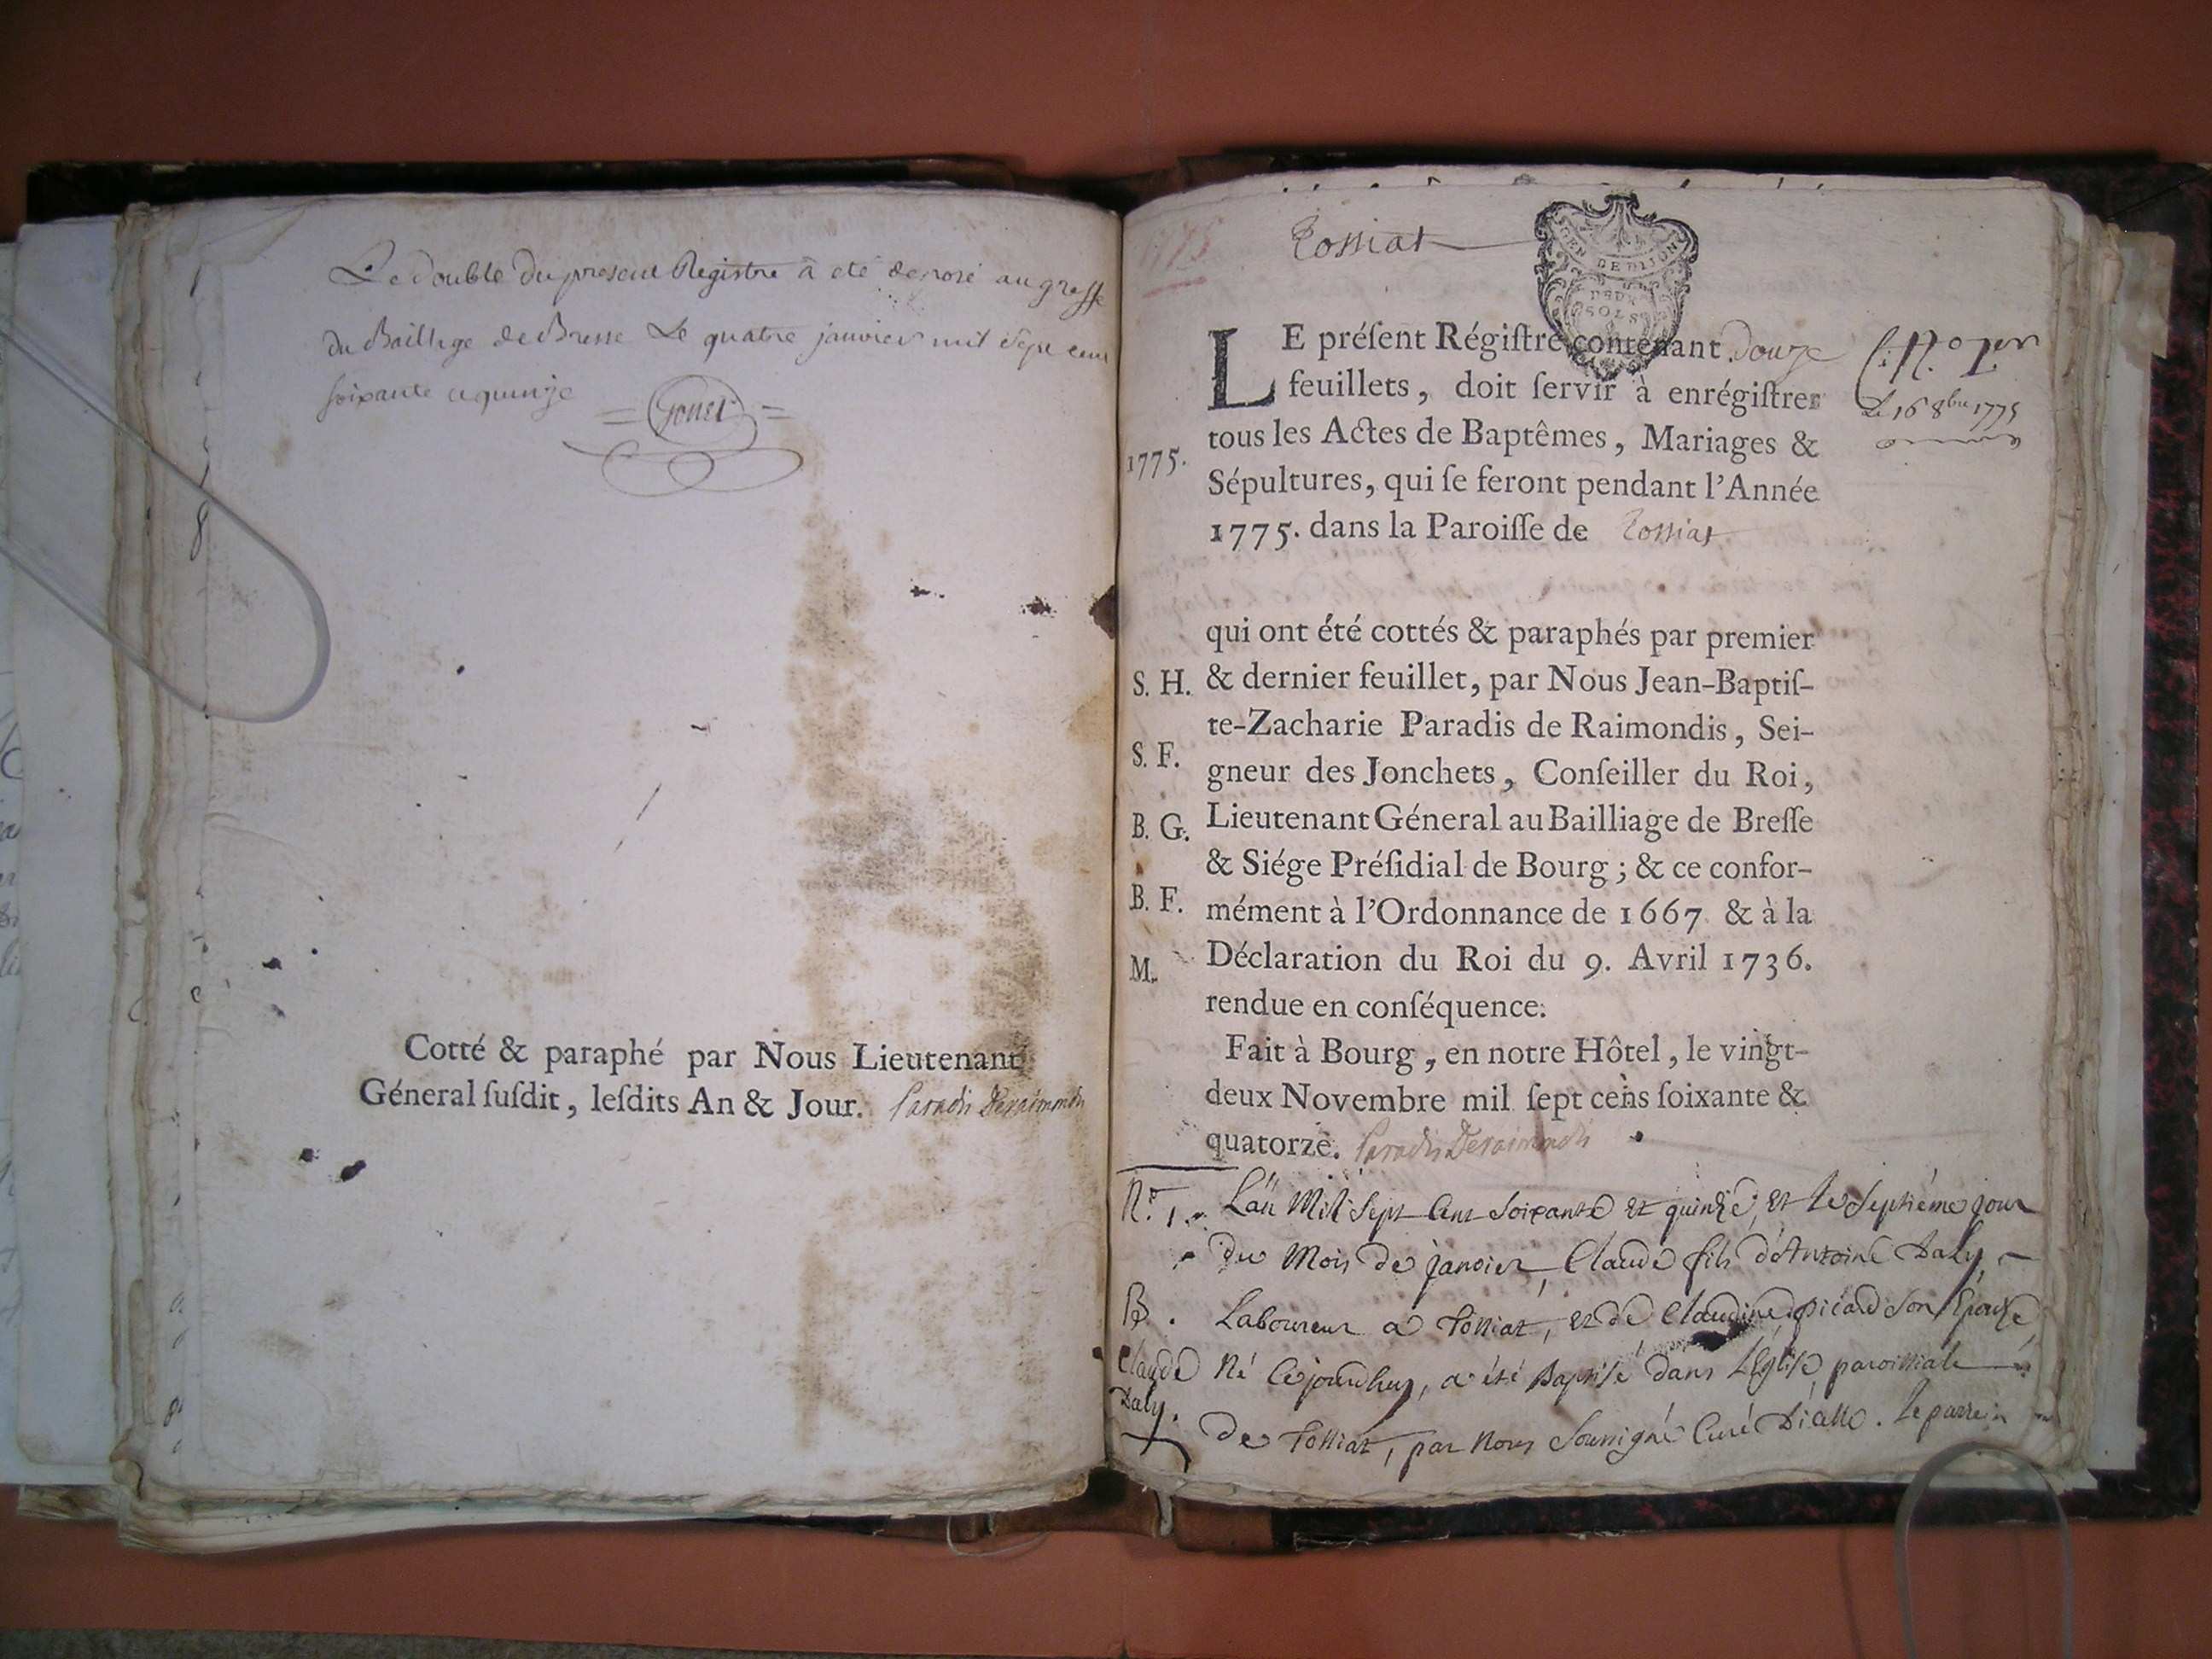 Le double du present Registre à eté deposé au greffe
du Bailliage de Bresse Le quatre janvier mil sept cent
soixante et quinze
Cotté & paraphé par Nous Lieutenant
Géneral ſuſdit, leſdits An & Jour. Paradis Deraimondis
Tossiat
GEN DE DIJON
DEUX
SOLS
LE préſent Régiſtre contenant douze
feuillets, doit ſervir à enrégiſtrer
tous les Actes de Baptêmes, Mariages &
Sépultures, qui ſe feront pendant l'Année
1775. dans la Paroiſſe de Tossiat
Le 16 8bre 1775
1775.
qui ont été cottés & paraphés par premier
& dernier feuillet, par Nous Jean-Baptiſ-
te-Zacharie Paradis de Raimondis, Sei-
gneur des Jonchets, Conſeiller du Roi,
Lieutenant Géneral au Bailliage de Breſſe
& Siége Préſidial de Bourg ; & ce confor-
mément à l'Ordonnance de 1667 & à la
Déclaration du Roi du 9. Avril 1736.
rendue en conſéquence.
S. H.
S. F.
B. G.
B. F.
M.
Fait à Bourg, en notre Hôtel, le vingt-
deux Novembre mil ſept cens ſoixante &
quatorze. Paradis Deraimondis
N.o 1. L'an Mil Sept Cent Soixante et quinze, et le Septiéme jour
du Mois de janvier, Claude fils d'Antoine Daly,
B. Laboureur a Tossiat, et de Claudine picard Son Epouse,
Claude Né Cejourdhuy, a été Baptisé dans L'Eglise paroissiale
Daly.
de Tossiat, par Nous Soussigné Curé Dicelle. Le parrein